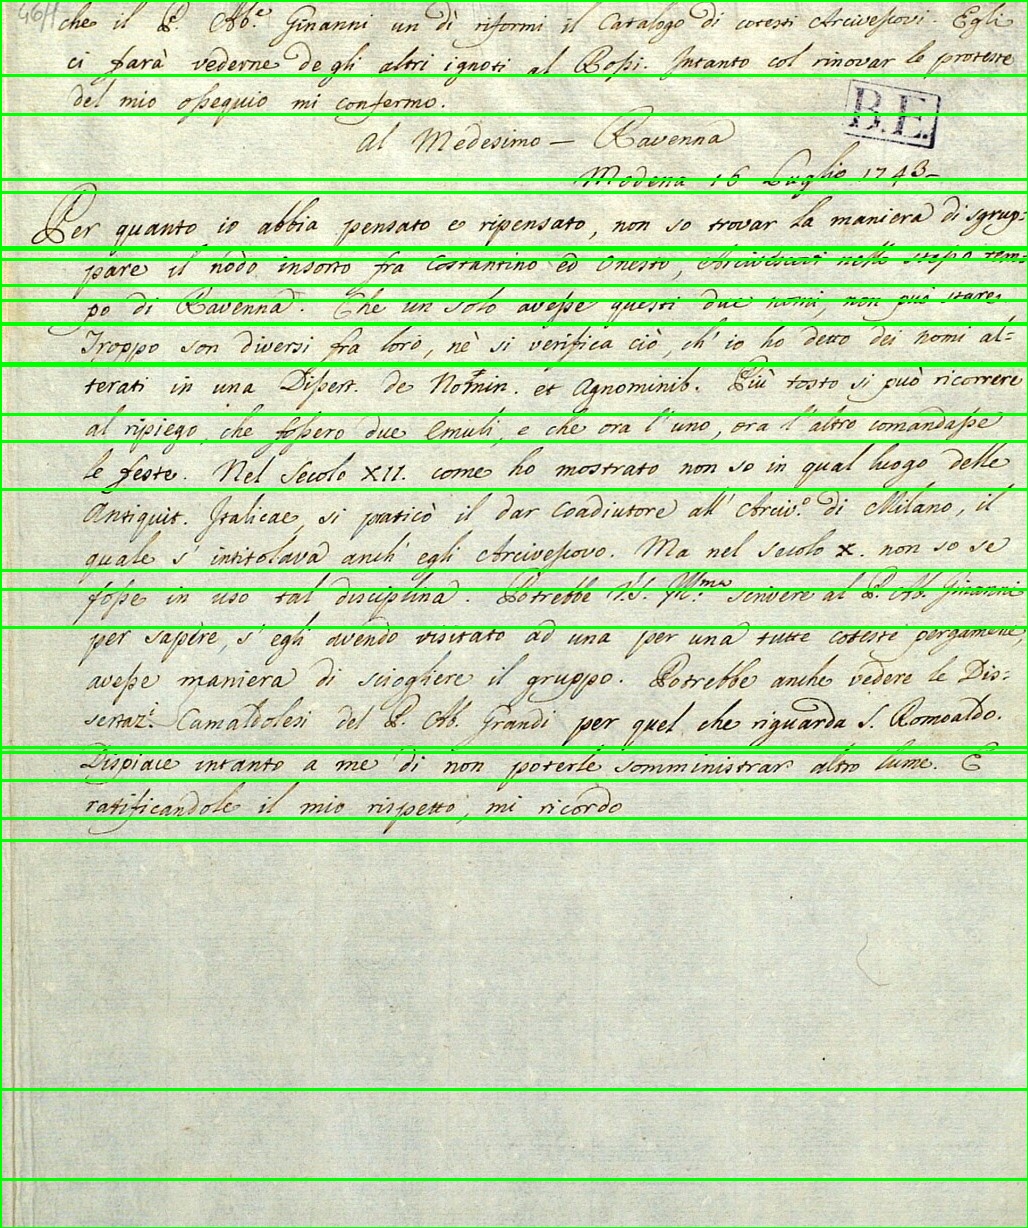 46
che il P. Ab.e Ginanni un dì riformi il Catalogo di cotesti Arcivescovi. Egli
ci farà vederne de gli altri ignoti al Rossi. Intanto col rinovar le proteste
del mio ossequio mi confermo.
B.E.
Al Medesimo — Ravenna
Modena 16 Luglio 1743
Per quanto io abbia pensato e ripensato, non so trovar la maniera di sgrup-
pare il nodo insorto fra Costantino ed Onesto, Arcivescovi nello stesso tem-
po di Ravenna. Che un solo avesse questi due nomi, non può stare.
Troppo son diversi fra loro, nè si verifica ciò, ch' io ho detto dei nomi al-
terati in una Dissert. de Nomin. et Agnominib. Più tosto si può ricorrere
al ripiego, che fossero due Emuli, e che ora l' uno, ora l' altro comandasse
le feste. Nel Secolo XII. come ho mostrato non so in qual luogo delle
Antiquit. Italicae, si praticò il dar Coadiutore all' Arciv.o di Milano, il
quale s' intitolava anch' egli Arcivescovo. Ma nel secolo X. non so se
fosse in uso tal disciplina. Potrebbe V.S. Ill.ma scrivere al P. Ab. Ginanni
per sapere, s' egli avendo visitato ad una per una tutte coteste pergamene,
avesse maniera di sciogliere il gruppo. Potrebbe anche vedere le Dis-
sertaz.i Camaldolesi del P. Ab. Grandi per quel che riguarda S. Romoaldo.
Dispiace intanto a me di non poterle somministrar altro lume. E
ratificandole il mio rispetto, mi ricordo